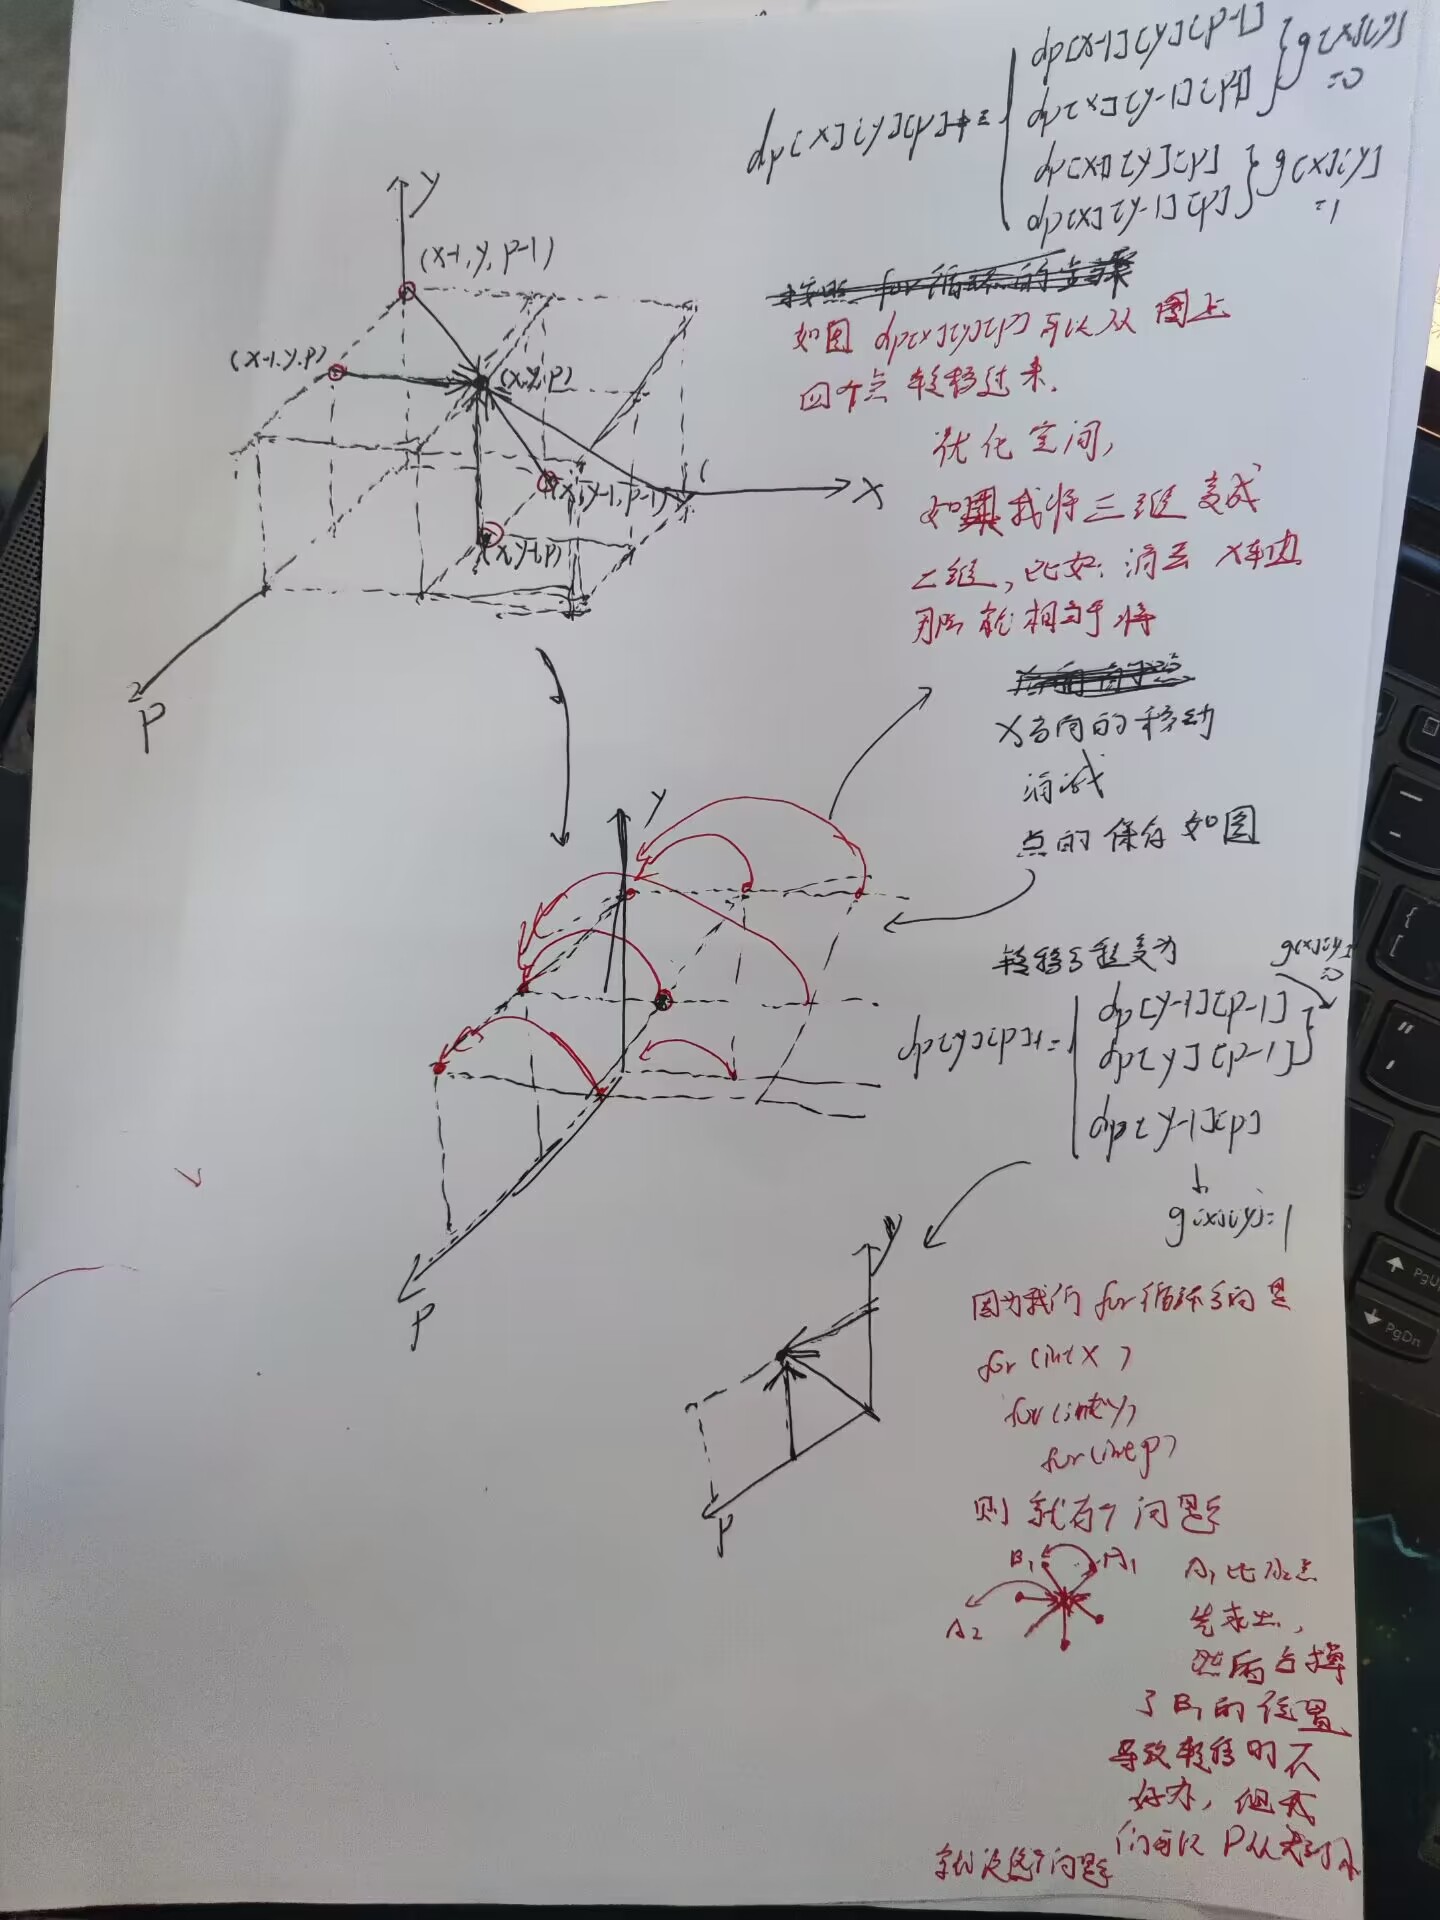 dp[x][y][p]+=
dp[x-1][y][p-1]
dp[x][y-1][p-1]
g[x][y]
=0
dp[x-1][y][p]
dp[x][y-1][p]
g[x][y]
=1
y
(x-1, y, p-1)
(x-1, y, p)
(x, y, p)
(x, y-1, p-1)
(x, y-1, p)
x
p
如图 dp[x][y][p] 可以从 图上
四个点 转移过来.
优化空间,
如果我将三维变成
二维, 比如: 消去 x车边
那么就相当于将
x方向的移动
消减
点的保存如图
y
p
转移方程变为
g[x][y]
=0
dp[y][p]+=
dp[y-1][p-1]
dp[y][p-1]
dp[y-1][p]
g[x][y]=1
y
p
因为我们 for 循环方向是
for (int x )
for (int y)
for (int p)
则 就有个 问题
B1
A1
A2
A1 比 A2点
先求出,
然后占掉
了 B1 的位置
导致转移时不
好办, 但我
们可以 P从大到小
就没这个问题